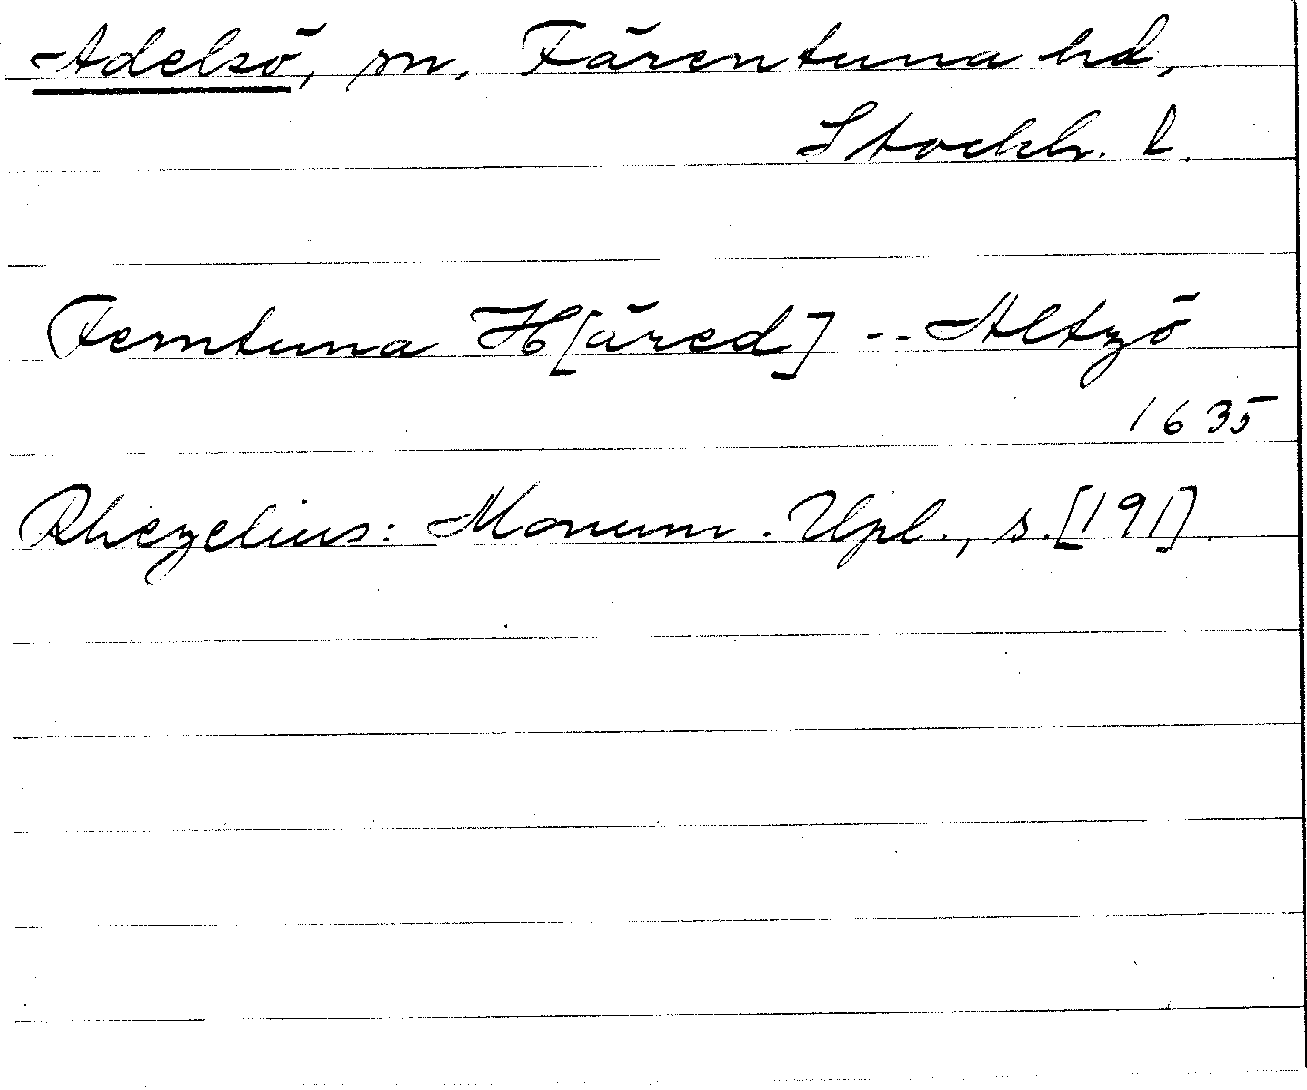 Adelsö, sn, Färentuna hd,
Stockh. l.
Ferntuna H[äred] -- Altzö
1635
Rhezelius: Monum. Upl., s.[191].